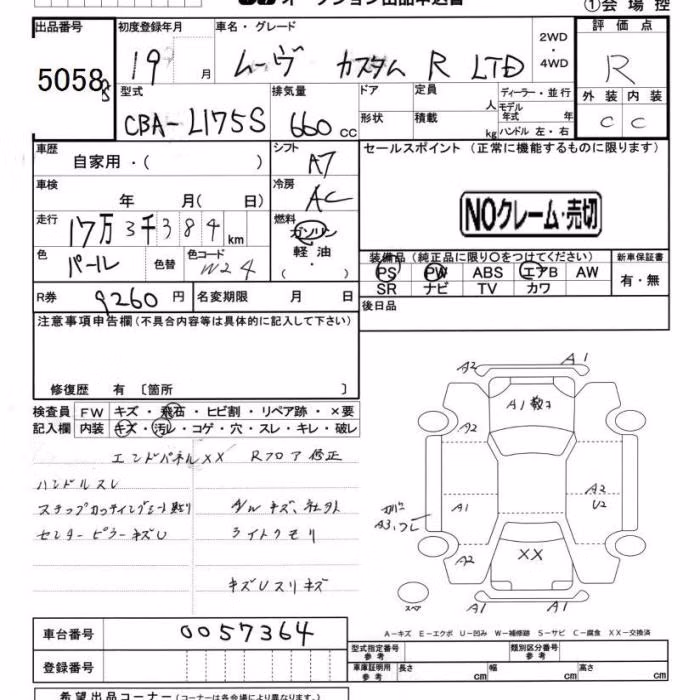 ①会場控
出品番号 初度登録年月 車名・グレード 2WD・4WD 評価点
5058 19 月 ムーヴ カスタム R LTD R
型式 排気量 ドア 定員 人 ディーラー・並行 外装 内装
CBA-L175S 660cc 形状 積載 kg モデル年式 年 ハンドル 左・右 C C
車歴 自家用・( ) シフト A7 セールスポイント (正常に機能するものに限ります)
車検 年 月( 日) 冷房 AC
NOクレーム・売切
走行 17万3千384km 燃料 ガソリン 軽油 ・( )
色 パール 色替 色コード W24
装備品 (純正品に限り〇をつけてください) 新車保証書
PS PW ABS エアB AW 有・無
SR ナビ TV カワ
R券 9260円 名変期限 月 日 後日品
注意事項申告欄 (不具合内容等は具体的に記入して下さい)
修復歴 有 〔箇所 〕
検査員 FW キズ・飛石・ヒビ割・リペア跡・×要
記入欄 内装 キズ・汚レ・コゲ・穴・スレ・キレ・破レ
エンドパネルXX Rフロア修正
ハンドルスレ
キズ、社外
センターピラーキズU ライトクモリ
キズUスリキズ
A2 A1
A1
A2
A1 A2 U2
A3
A2 XX
スペア A1 A1
A-キズ E-エクボ U-凹み W-補修跡 S-サビ C-腐食 XX-交換済
車台番号 0057364
型式指定番号 参考 類別区分番号 参考
登録番号 車庫証明用 参考 長さ cm 幅 cm 高さ cm
希望出品コーナー (コーナーは各会場により異なります。)